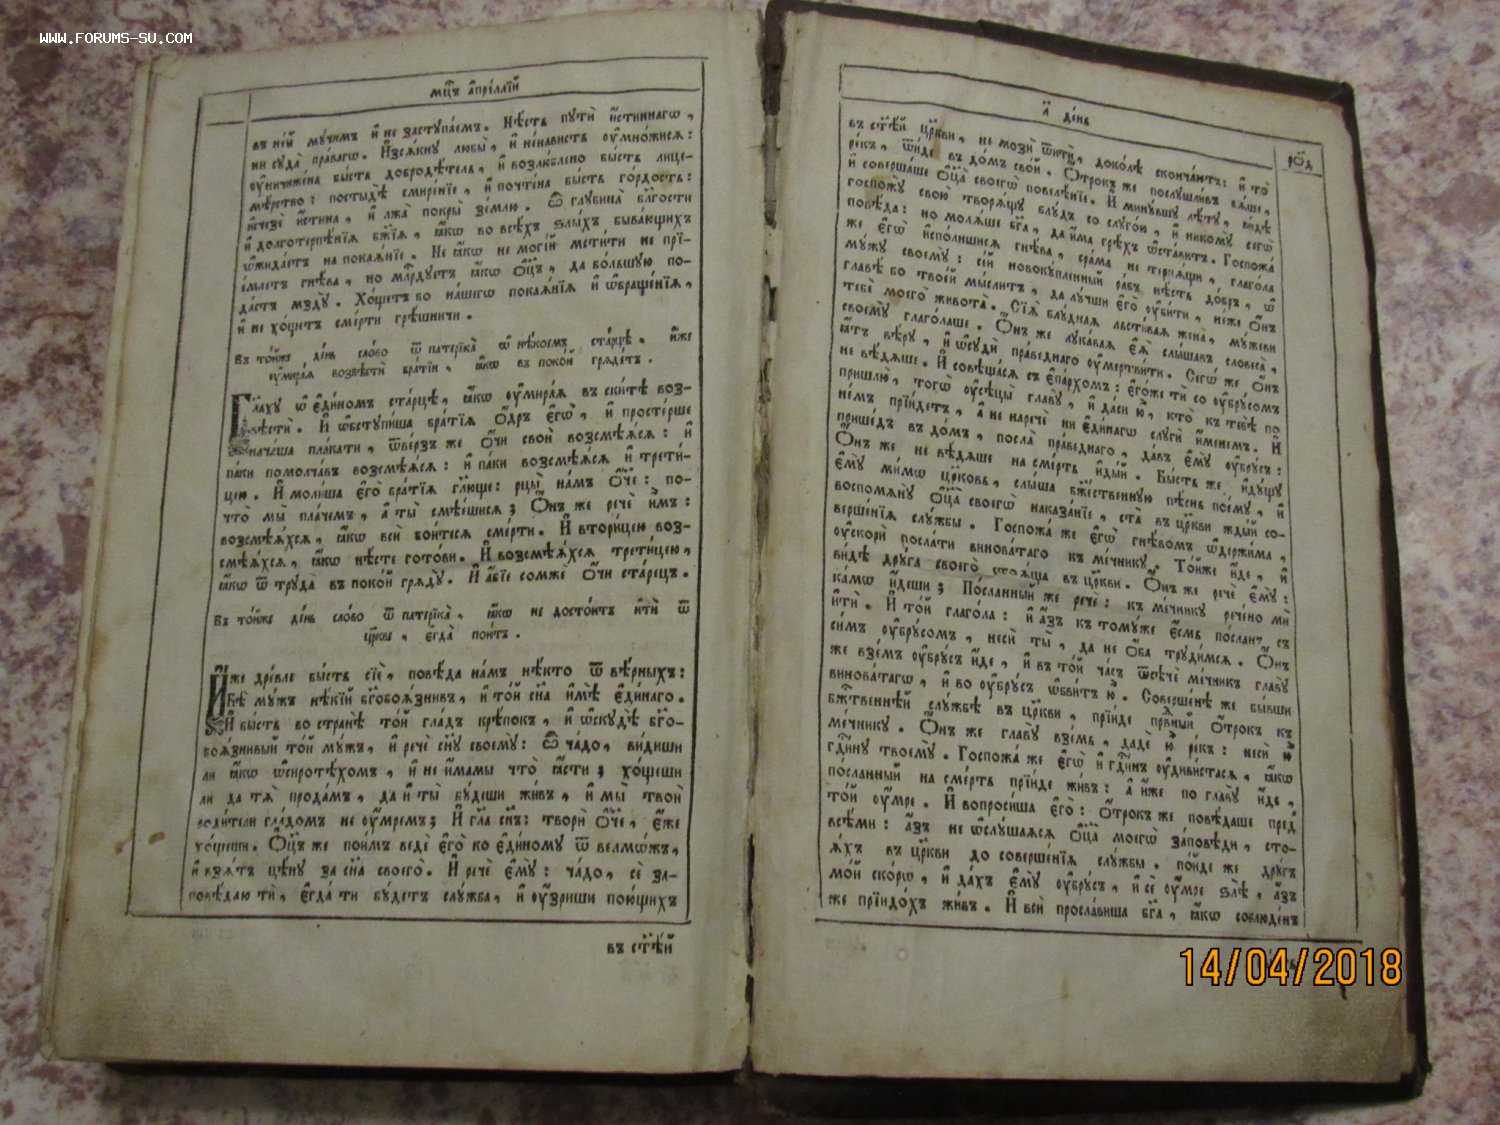 WWW.FORUMS-SU.COM
мц҃ъ а҆прі́ллїй
въ не́й мꙋ́чимъ и҆ не застꙋпа́емъ . Нѣ́сть пꙋтѝ и҆́стиннагѡ ,
ни сꙋда̀ пра́вагѡ . И҆зсѧ́кнꙋ любы̀ , и҆ не́нависть ᲂу҆мно́жисѧ :
ᲂу҆ничиже́на бы́сть добродѣ́тель , и҆ возлю́блено бы́сть лице-
мѣ́рство : постыдѣ̀ смире́нїе , и҆ почте́на бы́сть го́рдость :
и҆счезѐ и҆́стина , и҆ лжа̀ покры̀ зе́млю . Ѽ глꙋбина̀ бл҃гости
и҆ долготерпѣ́нїѧ бж҃їѧ , ꙗ҆́кѡ во всѣ́хъ ѕлы́хъ быва́ющихъ
ѡ҆жида́етъ на покаѧ́нїе . Не ꙗ҆́кѡ не могі́й мсти́ти не прїе́-
млетъ гнѣ́ва , но млⷭ҇рдꙋетъ ꙗ҆́кѡ ѻ҆ц҃ъ , да бо́льшꙋю по-
да́стъ мздꙋ̀ . Хо́щетъ бо на́шегѡ покаѧ́нїѧ и҆ ѡ҆браще́нїѧ ,
и҆ не хо́щетъ сме́рти грѣ́шничи .
Въ то́йже де́нь сло́во ѿ патерїка̀ ѡ҆ нѣ́коемъ ста́рцѣ , и҆́же
ᲂу҆мира́ѧ возвѣстѝ бра́тїи , ꙗ҆́кѡ въ поко́й грѧде́тъ .
Гл҃ахꙋ ѡ҆ є҆ди́номъ ста́рцѣ , ꙗ҆́кѡ ᲂу҆мира́ѧ въ ски́тѣ воз-
вѣстѝ . И҆ ѡ҆бстꙋпи́ша бра́тїѧ ѻ҆́дръ є҆гѡ̀ , и҆ просте́рше
нача́ша пла́кати , ѿве́рзъ же ѻ҆́чи своѝ возсмѣѧ́сѧ : и҆
па́ки помолча́въ возсмѣѧ́сѧ : и҆ па́ки возсмѣѧ́сѧ и҆ трети́-
цею . И҆ моли́ша є҆го̀ бра́тїѧ гл҃юще : рцы̀ на́мъ ѻ҆́ч҃е : по-
что̀ мы̀ пла́чемъ , а҆ ты̀ смѣе́шисѧ ; Ѻ҆́нъ же речѐ и҆̀мъ :
возсмѣѧ́хсѧ , ꙗ҆́кѡ всѝ бои́тесѧ сме́рти . И҆ втори́цею воз-
смѣѧ́хсѧ , ꙗ҆́кѡ нѣ́сте гото́ви . И҆ возсмѣѧ́хсѧ трети́цею ,
ꙗ҆́кѡ ѿ трꙋда̀ въ поко́й грѧдꙋ̀ . И҆ а҆́бїе сомжѐ ѻ҆́чи ста́рецъ .
Въ то́йже де́нь сло́во ѿ патерїка̀ , ꙗ҆́кѡ не досто́итъ и҆тѝ ѿ
цр҃кве , є҆гда̀ пою́тъ .
И҆́же дре́вле бы́сть сїѐ , повѣ́да на́мъ нѣ́кто ѿ вѣ́рныхъ :
бѣ̀ мꙋ́жъ нѣ́кїй бг҃обоѧ́знивъ , и҆ то́й сн҃а и҆мѣ̀ є҆ди́наго .
И҆ бы́сть во странѣ̀ то́й гла́дъ крѣ́покъ , и҆ ѡ҆скꙋдѣ̀ бг҃о-
боѧ́знивый то́й мꙋ́жъ , и҆ речѐ сн҃ꙋ своемꙋ̀ : Ѽ ча́до , ви́диши
ли ꙗ҆́кѡ ѡ҆сиротѣ́хомъ , и҆ не и҆́мамы что̀ ꙗ҆́сти ; хо́щеши
ли да тѧ̀ прода́мъ , да и҆ ты̀ бꙋ́деши жи́въ , и҆ мы̀ твоѝ
води́тели гла́домъ не ᲂу҆́мремъ ; И҆ гл҃а сн҃ъ : творѝ ѻ҆́ч҃е , є҆́же
хо́щеши . Ѻ҆ц҃ъ же пои́мъ ведѐ є҆го̀ ко є҆ди́номꙋ ѿ велмо́жъ ,
и҆ взѧ́тъ цѣ́нꙋ за сн҃а своего̀ . И҆ речѐ є҆мꙋ̀ : ча́до , сѐ за-
повѣ́даю тѝ , є҆гда́ ти бꙋ́детъ слꙋ́жба , и҆ ᲂу҆́зриши пою́щихъ
въ ст҃ѣ́й
а҃ де́нь
въ ст҃ѣ́й цр҃кви , не мозѝ ѿитѝ , доко́лѣ сконча́ютъ : и҆ то̀
ре́къ , ѿи́де въ до́мъ сво́й . Ѻ҆́трокъ же послꙋшли́въ бѧ́ше ,
и҆ соверша́ше ѻ҆ц҃а̀ своегѡ̀ повелѣ́нїе . И҆ минꙋ́вшꙋ лѣ́тꙋ , ви́дѣ
госпожꙋ̀ свою̀ творѧ́щꙋ блꙋ́дъ со слꙋго́ю , и҆ никомꙋ̀ сегѡ̀
повѣ́да : но молѧ́ше бг҃а , да и҆̀ма грѣ́хъ ѡ҆ста́витъ . Госпожа́
же є҆гѡ̀ и҆спо́лнишисѧ гнѣ́ва , сра́ма не терпѧ́щи , глаго́ла
мꙋ́жꙋ своемꙋ̀ : се́й новокꙋ́пленный ра́бъ нѣ́сть до́бръ , ѡ҆
главѣ́ бо твое́й мы́слитъ , да лꙋ́чши є҆го̀ ᲂу҆би́ти , не́же ѻ҆́нъ
тебѐ моего̀ живота̀ . Сїѧ̀ блꙋ́днаѧ льсти́ваѧ жена̀ , мꙋ́жеви
своемꙋ̀ глаго́лаше . Ѻ҆́нъ же лꙋка́ваѧ є҆ѧ̀ слы́шавъ словеса̀ ,
ꙗ҆́тъ вѣ́рꙋ , и҆ ѡ҆сꙋдѝ пра́веднаго ᲂу҆мертви́ти . Сегѡ́ же ѻ҆́нъ
не вѣ́дѧше . И҆ совѣща́сѧ съ є҆па́рхомъ : є҆го́же тѝ со ᲂу҆брꙋ́сомъ
пришлю̀ , тогѡ̀ ᲂу҆сѣцы̀ главꙋ̀ , и҆ да́си ю҆̀ , кто̀ къ тебѣ̀ по
не́мъ прїи́детъ , а҆ не наречѐ ни є҆ди́нагѡ слꙋгѝ и҆́менемъ . И҆
прише́дъ въ до́мъ , посла̀ пра́веднаго , да́въ є҆мꙋ̀ ᲂу҆брꙋ́съ :
Ѻ҆́нъ же не вѣ́дѧше на сме́рть и҆ды́й . Бы́сть же и҆дꙋ́щꙋ
є҆мꙋ̀ ми́мѡ цр҃ковь , слы́ша бж҃е́ственнꙋю пѣ́снь пое́мꙋ , и҆
воспомѧнꙋ̀ ѻ҆ц҃а̀ своегѡ̀ наказа́нїе , ста̀ въ цр҃кви жды́й со-
верше́нїѧ слꙋ́жбы . Госпожа́ же є҆гѡ̀ гнѣ́вомъ ѡ҆держи́ма ,
ᲂу҆скорѝ посла́ти винова́таго къ мечникꙋ̀ . То́йже и҆́де , и҆
ви́дѣ дрꙋ́га своего̀ стоѧ́ща въ цр҃кви . Ѻ҆́нъ же речѐ є҆мꙋ̀ :
ка́мѡ и҆́деши ; По́сланный же речѐ : къ ме́чникꙋ рече́но мѝ
и҆тѝ . И҆ то́й глаго́ла : и҆ а҆́зъ къ томꙋ́же є҆́смь по́сланъ съ
си́мъ ᲂу҆брꙋ́сомъ , несѝ ты̀ , да не ѻ҆́ба трꙋ́димсѧ . Ѻ҆́нъ
же взе́мъ ᲂу҆брꙋ́съ и҆́де , и҆ въ то́й ча́съ ѿсѣчѐ ме́чникъ главꙋ̀
винова́тагѡ , и҆ во ᲂу҆брꙋ́съ ѡ҆бви́тъ ю҆̀ . Соверше́нѣ же бы́вши
бж҃твеннѣ́й слꙋ́жбѣ въ цр҃кви , прїи́де првⷣный ѻ҆́трокъ къ
ме́чникꙋ . Ѻ҆́нъ же главꙋ̀ взе́мь , дадѐ ю҆̀ ре́къ : несѝ ю҆̀
гдⷭ҇и́нꙋ твоемꙋ̀ . Госпожа́ же є҆гѡ̀ и҆ гдⷭ҇и́нъ ᲂу҆диви́стасѧ , ꙗ҆́кѡ
по́сланный на сме́рть прїи́де жи́въ : а҆ и҆́же по главꙋ̀ и҆́де ,
то́й ᲂу҆́мре . И҆ вопроси́ша є҆го̀ : Ѻ҆́трокъ же повѣ́даше пред̾
всѣ́ми : а҆́зъ не ѡ҆слꙋ́шаѧсѧ ѻ҆ц҃а̀ моегѡ̀ за́повѣди , сто-
ѧ́хъ въ цр҃кви до соверше́нїѧ слꙋ́жбы . по́йде же дрꙋ́гъ
мо́й ско́рѡ , и҆ да́хъ є҆мꙋ̀ ᲂу҆брꙋ́съ , и҆ сѐ ᲂу҆́мре ѕлѣ̀ , а҆́зъ
же прїидо́хъ жи́въ . И҆ всѝ просла́виша бг҃а , ꙗ҆́кѡ соблюде́нъ
роⷥ҇д
14/04/2018